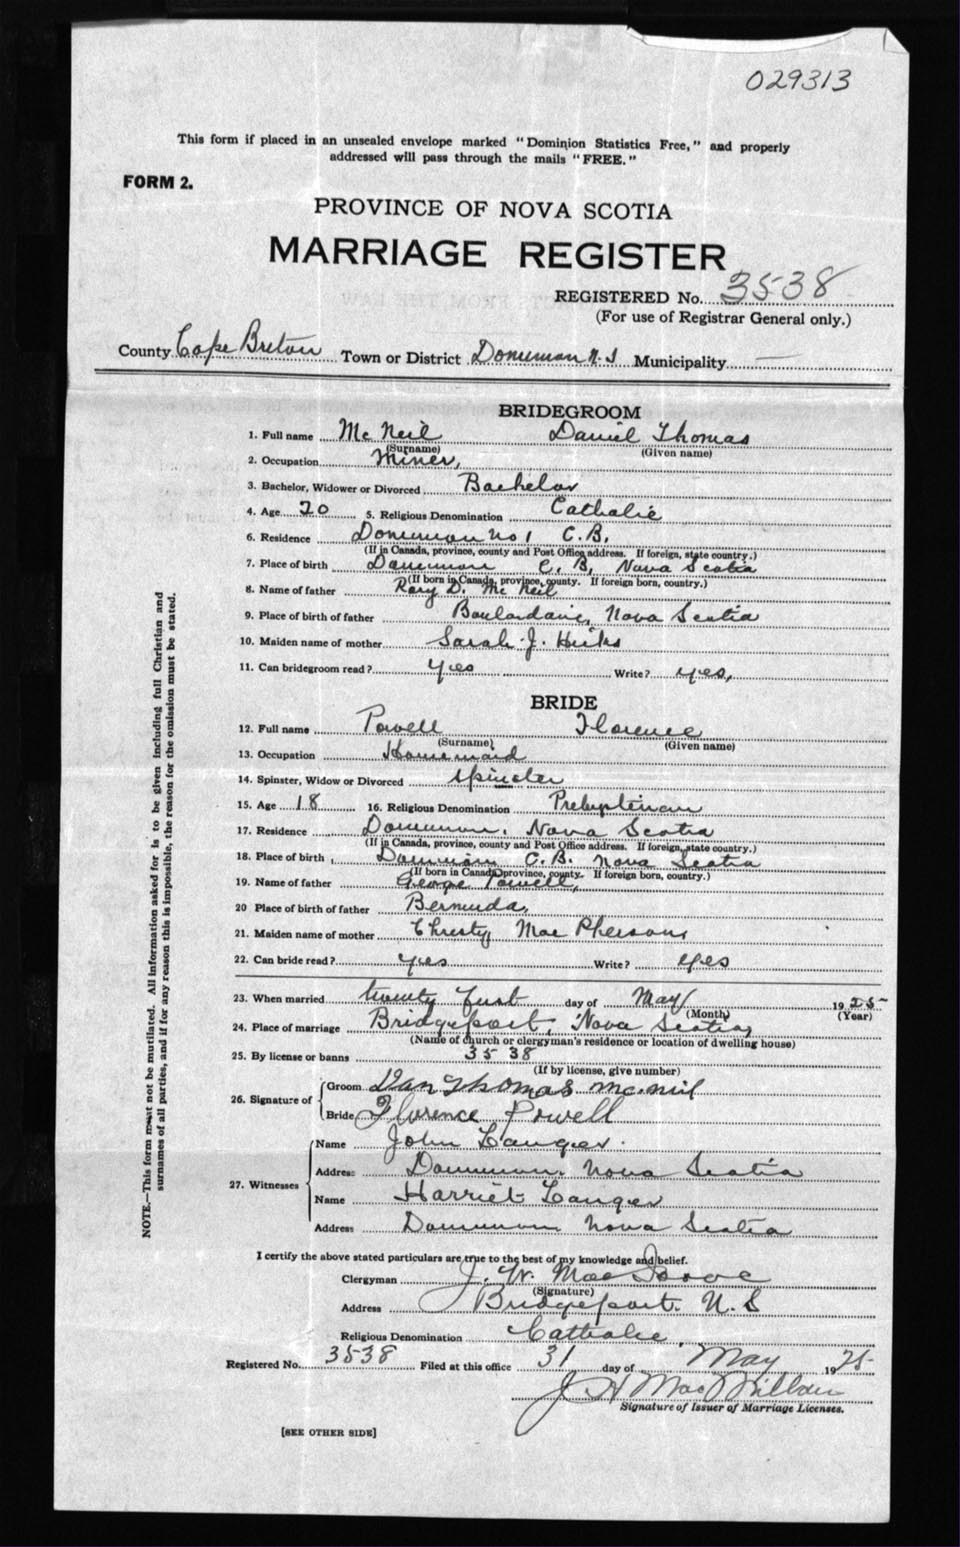 029313
This form if placed in an unsealed envelope marked "Dominion Statistics Free," and properly
addressed will pass through the mails "FREE."
FORM 2.
PROVINCE OF NOVA SCOTIA
MARRIAGE REGISTER
REGISTERED No. 3538
(For use of Registrar General only.)
County Cape Breton Town or District Dominion N.S Municipality
BRIDEGROOM
1. Full name Mc Neil Daniel Thomas
(Surname) (Given name)
2. Occupation Miner,
3. Bachelor, Widower or Divorced Bachelor
4. Age 20 5. Religious Denomination Catholic
6. Residence Dominion No 1 C.B.
(If in Canada, province, county and Post Office address. If foreign, state country.)
7. Place of birth Dominion C. B, Nova Scotia
(If born in Canada, province, county. If foreign born, country.)
8. Name of father Rory D. Mc Neil
9. Place of birth of father Boulardarie, Nova Scotia
10. Maiden name of mother Sarah J.
11. Can bridegroom read? yes Write? yes,
BRIDE
12. Full name Powell Florence
(Surname) (Given name)
13. Occupation Housemaid
14. Spinster, Widow or Divorced Spinster
15. Age 18 16. Religious Denomination Prebyterian
17. Residence Dominion, Nova Scotia
(If in Canada, province, county and Post Office address. If foreign, state country.)
18. Place of birth Dominion C.B. Nova Scotia
(If born in Canada province, county. If foreign born, country.)
19. Name of father George Powell,
20 Place of birth of father Bermuda,
21. Maiden name of mother Christy Mac Pherson,
22. Can bride read? yes Write? yes
23. When married twenty first day of May 1925
(Month) (Year)
24. Place of marriage Bridgeport, Nova Scotia,
(Name of church or clergyman's residence or location of dwelling house)
25. By license or banns 3538
(If by license, give number)
26. Signature of
Groom Dan Thomas mcneil
Bride Florence Powell
27. Witnesses
Name John
Address Dominion, Nova Scotia
Name Harriet
Address Dominion Nova Scotia
I certify the above stated particulars are true to the best of my knowledge and belief.
Clergyman J. W. Mac
(Signature)
Address Bridgeport. N.S
Religious Denomination Catholic
Registered No. 3538 Filed at this office 31 day of May 1925
J H Mac
Signature of Issuer of Marriage Licenses.
[SEE OTHER SIDE]
NOTE.—This form must not be mutilated. All information asked for is to be given including full Christian and
surnames of all parties, and if for any reason this is impossible, the reason for the omission must be stated.